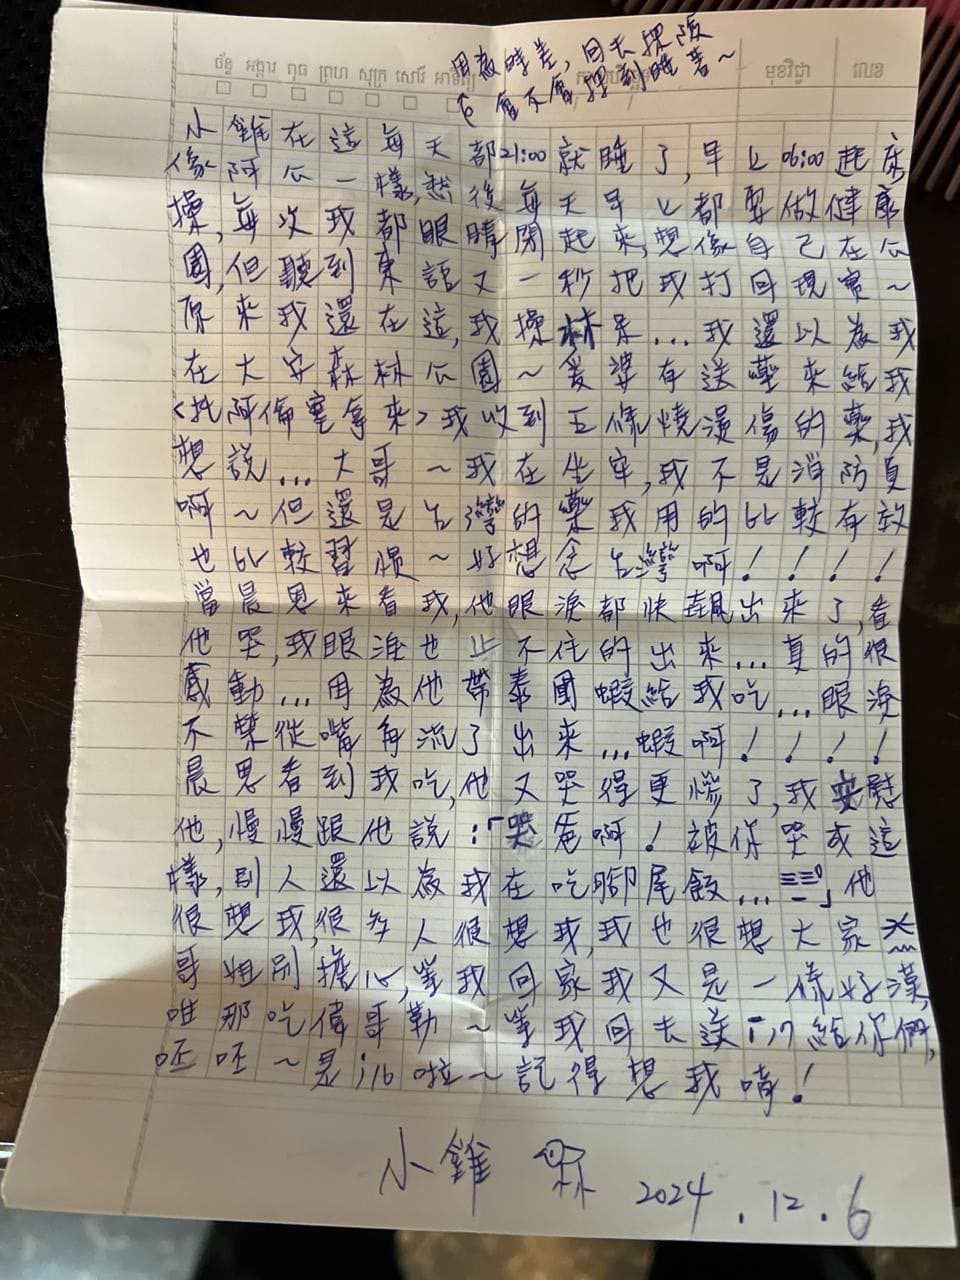 因為時差，回去探完
會不會睡到睡著～
ច័ន្ទ អង្គារ ពុធ ព្រហ សុក្រ សៅរ៍ អាទិត្យ
មុខវិជ្ជា
លេខ
小雞在這每天都21:00就睡了，早上06:00起床
像阿公一樣，然後每天早上都要做健康
操，每次我都眼睛閉起來，想像自己在公
園，但聽到柬語又一秒把我打回現實～
原來我還在這，我操林呆...我還以為我
在大安森林公園～愛婆有送藥來給我
<托阿倫寄拿來>我收到五條燒燙傷的藥，我
想說...大哥～我在坐牢，我不是消防員
啊～但還是台灣的藥我用的比較有效
也比較習慣～好想念台灣啊！！！！
當晨恩來看我，他眼淚都快飆出來了，看
他哭，我眼淚也止不住的出來...真的很
感動...因為他帶泰國蝦給我吃...眼淚
不禁從嘴角流了出來...蝦啊！！！！
晨恩看到我吃，他又哭得更慘了，我安慰
他，慢慢跟他說：「哭爸啊！被你哭成這
樣，別人還以為我在吃腳尾飯...」他
很想我，很多人很想我，我也很想大家
哥姐別擔心，等我回家我又是一條好漢，
唯那吃偉哥勒～等我回去送給你們，
呸呸～是啦～記得想我唷！
小雞 2024.12.6